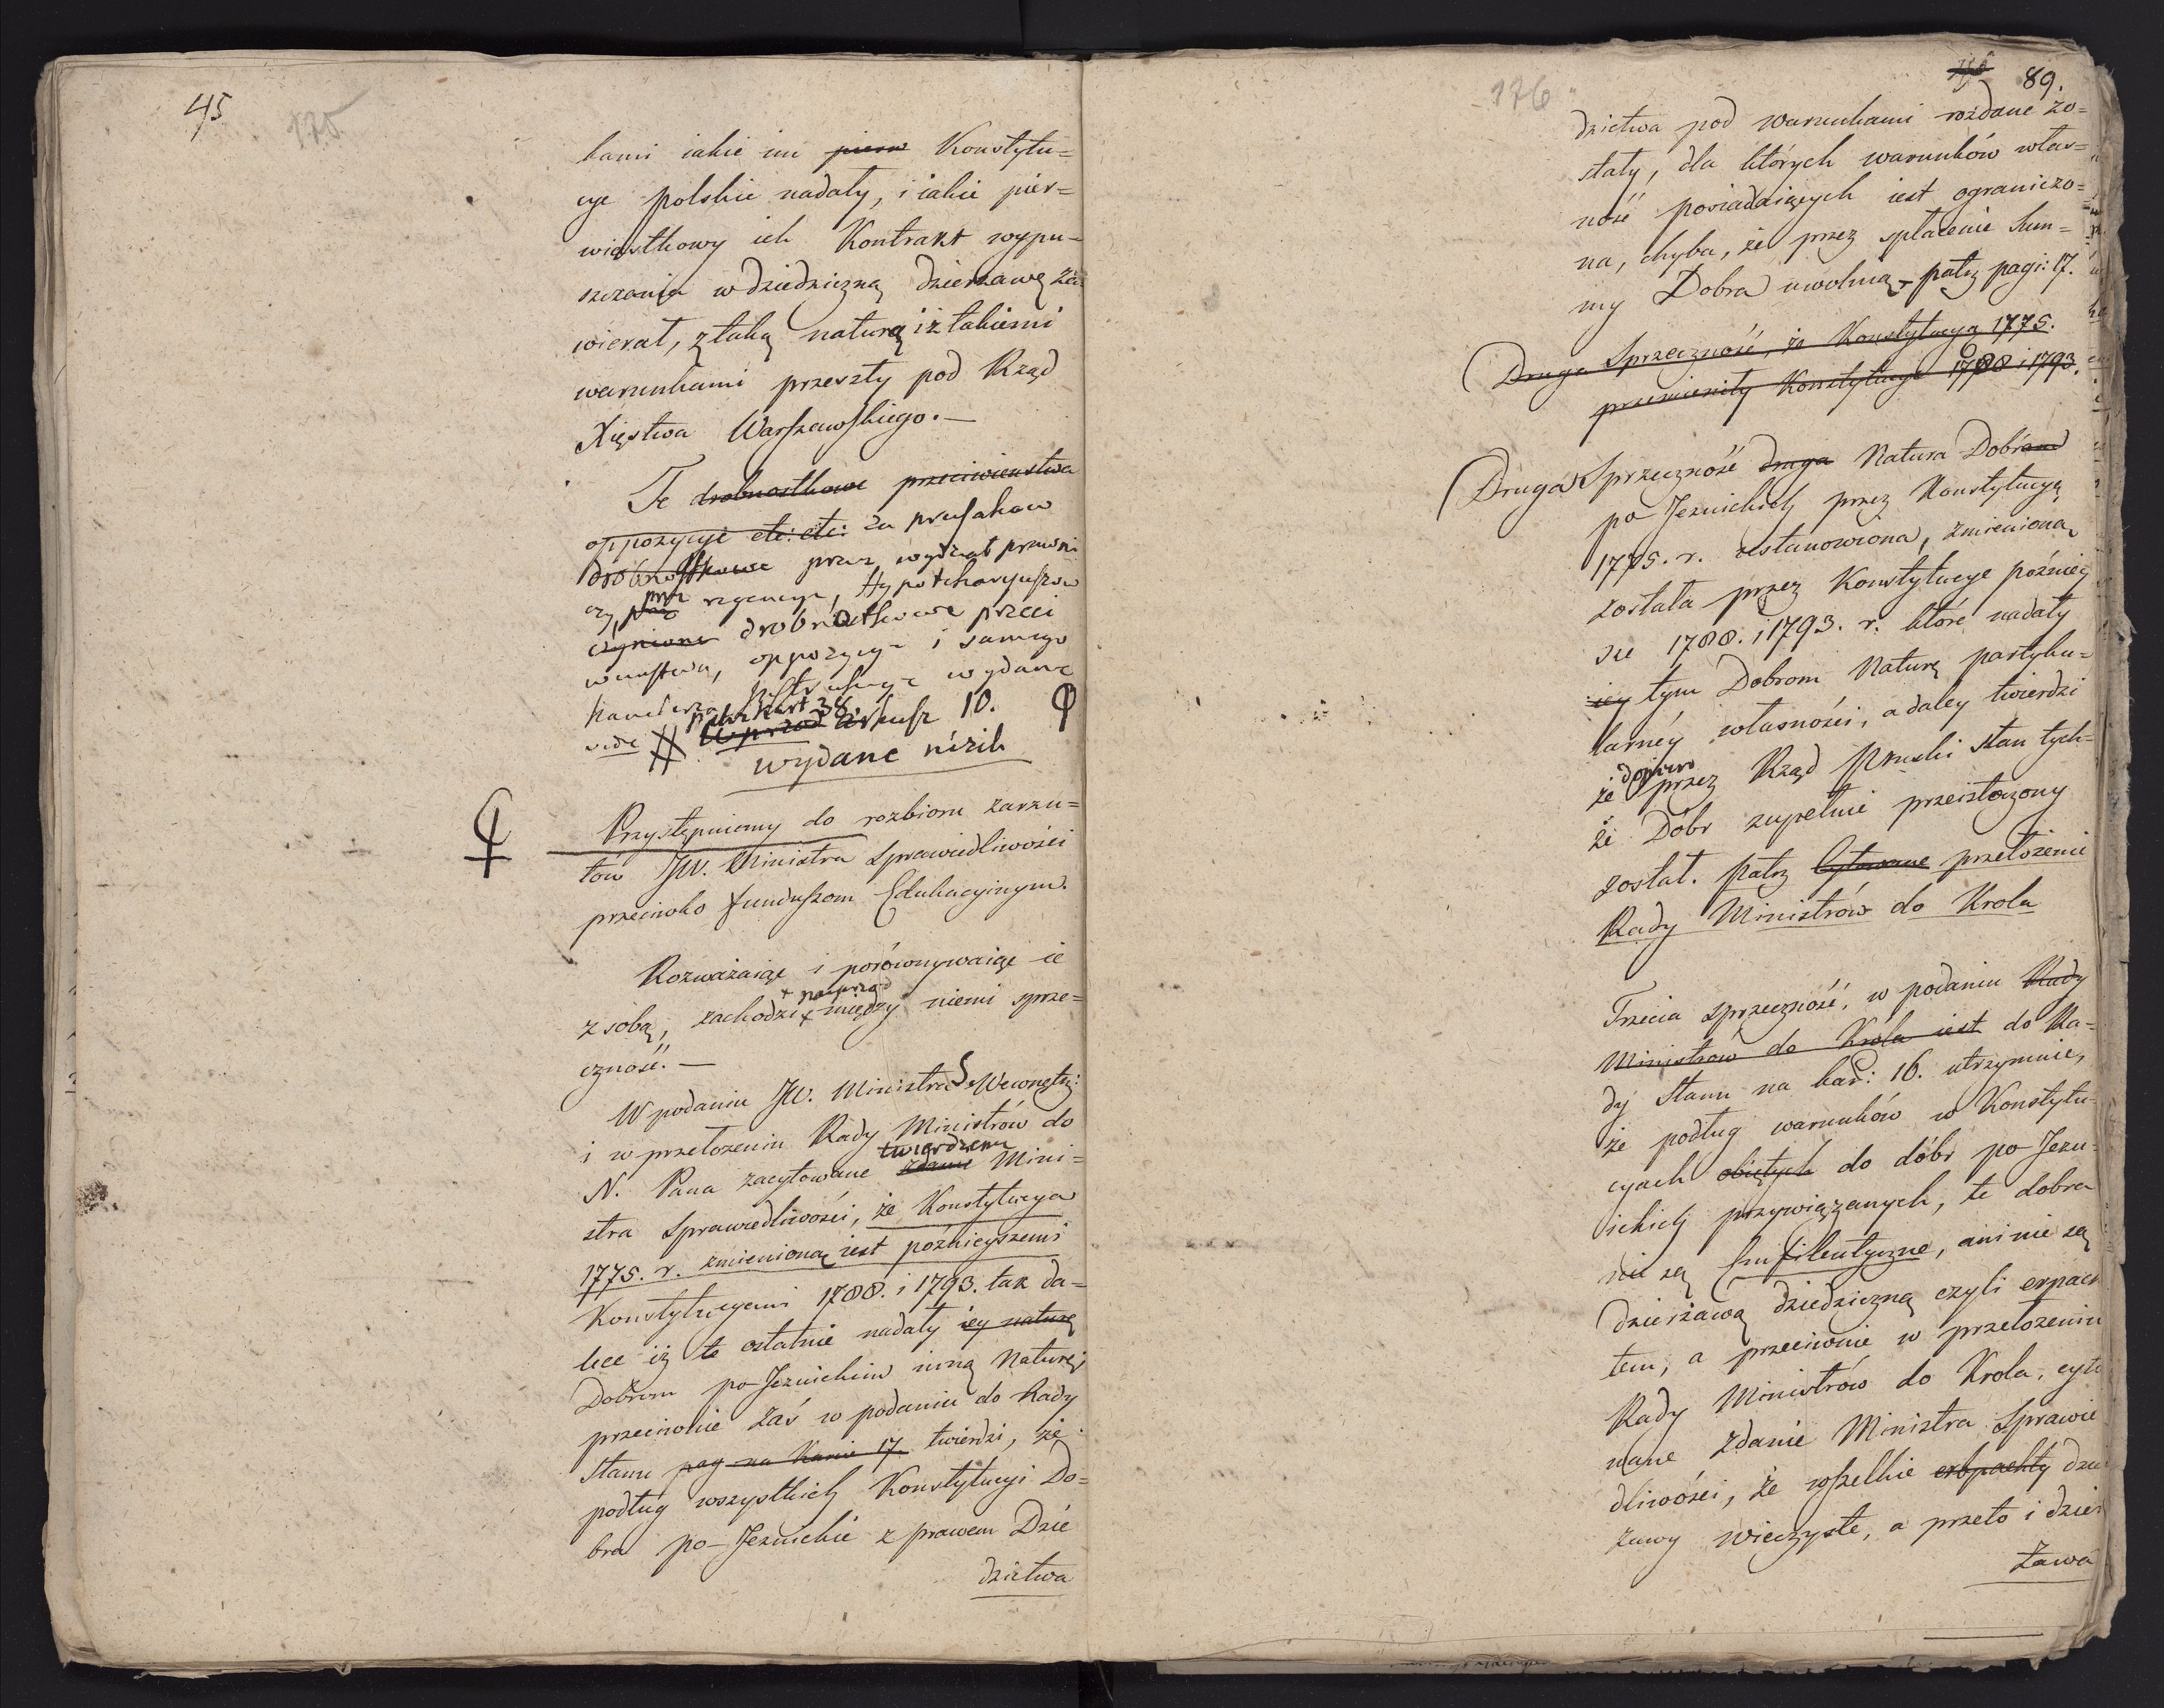 45
175
kami iakie im pierw Konstytu=
cye polskie nadały, i iakie pier=
wiastkowy ich Kontrakt wypu=
szczania w dziedziczną dzierzawę za=
wierał, z taką naturą i z takiemi
warunkami przeszły pod Rząd
Xięstwa Warszawskiego.—
Te drobnostkowe przeciwieństwa
oppozycye etc: etc: za prusakow
drobnostkowe przez wydział prawni
czy, przez regencye, Hypotekaryuszow
czynione drobnostkowe przeci
wieństwa, oppozycye i samego
Kanclerza wydane
vide patrz kart 38. wprzód arkusz 10.
wydane niżih
Przystąpmiemy do rozbioru zarzu=
tów JW. Ministra Sprawiedliwości
przeciwko funduszom Edukacyinym.
Rozważaiąc i porównywaiąc ie
z sobą, zachodzi + naprzód między niemi sprze=
czność.—
W podaniu JW. Ministra S. Wewnętrz:
i w przełożeniu Rady Ministrów do
N. Pana zacytowane zdanie twierdzenie Mini=
stra Sprawiedliwości, że Konstytucya
1775. r. zmienioną iest poźnieyszemi
Konstytucyami 1788. i 1793. tak da=
lece iż te ostatnie nadały iey naturę
Dobrom po-Jezuickim inną Naturę;
przeciwnie zaś w podaniu do Rady
Stanu pag na Karcie 17. twierdzi, że
podług wszystkich Konstytucyi Do=
bra po-Jezuickie z prawem Dzie
dzictwa
176
89.
dzictwa pod warunkami rozdane zo=
stały, dla których warunków włas=
ność posiadaiących iest ograniczo=
na, chyba, że przez spłacenie Sum=
my Dobra uwolnią, patrz pagi: 17.
Druga Sprzeczność, że Konstytucya 1775.
przemieniły Konstytucye 1788 i 1793.
Druga Sprzeczność druga Natura Dobrom
po-Jezuickich przez Konstytucyą
1775. r. postanowiona, zmienioną
została przez Konstytucye poźniey
sze 1788. i 1793. r. które nadały
iey tym Dobrom Naturę partyku=
larnéy własności, a daley twierdzi
że dopiero przez Rząd Pruski stan tych=
że Dóbr zupełnie przeistoczony
został. Patrz Cytowane przełożenie
Rady Ministrów do Krola
Trzecia sprzeczność, w podaniu Rady
Ministrów do Króla iest do Ra=
dy Stanu na kar: 16. utrzymuie,
że podług warunków w Konstytu=
cyach obiętych do dóbr po-Jezu=
ickich przywiązanych, te dobra
nie są Emfiteutyczne, ani nie są
dzierżawą dziedziczną czyli erpach
tem, a przeciwnie w przełożeniu
Rady Ministrów do Krola, cyto
wane zdanie Ministra Sprawie
dliwości, że wszelkie erbpachty dzier
żawy wieczyste, a przeto i dzier
żawa